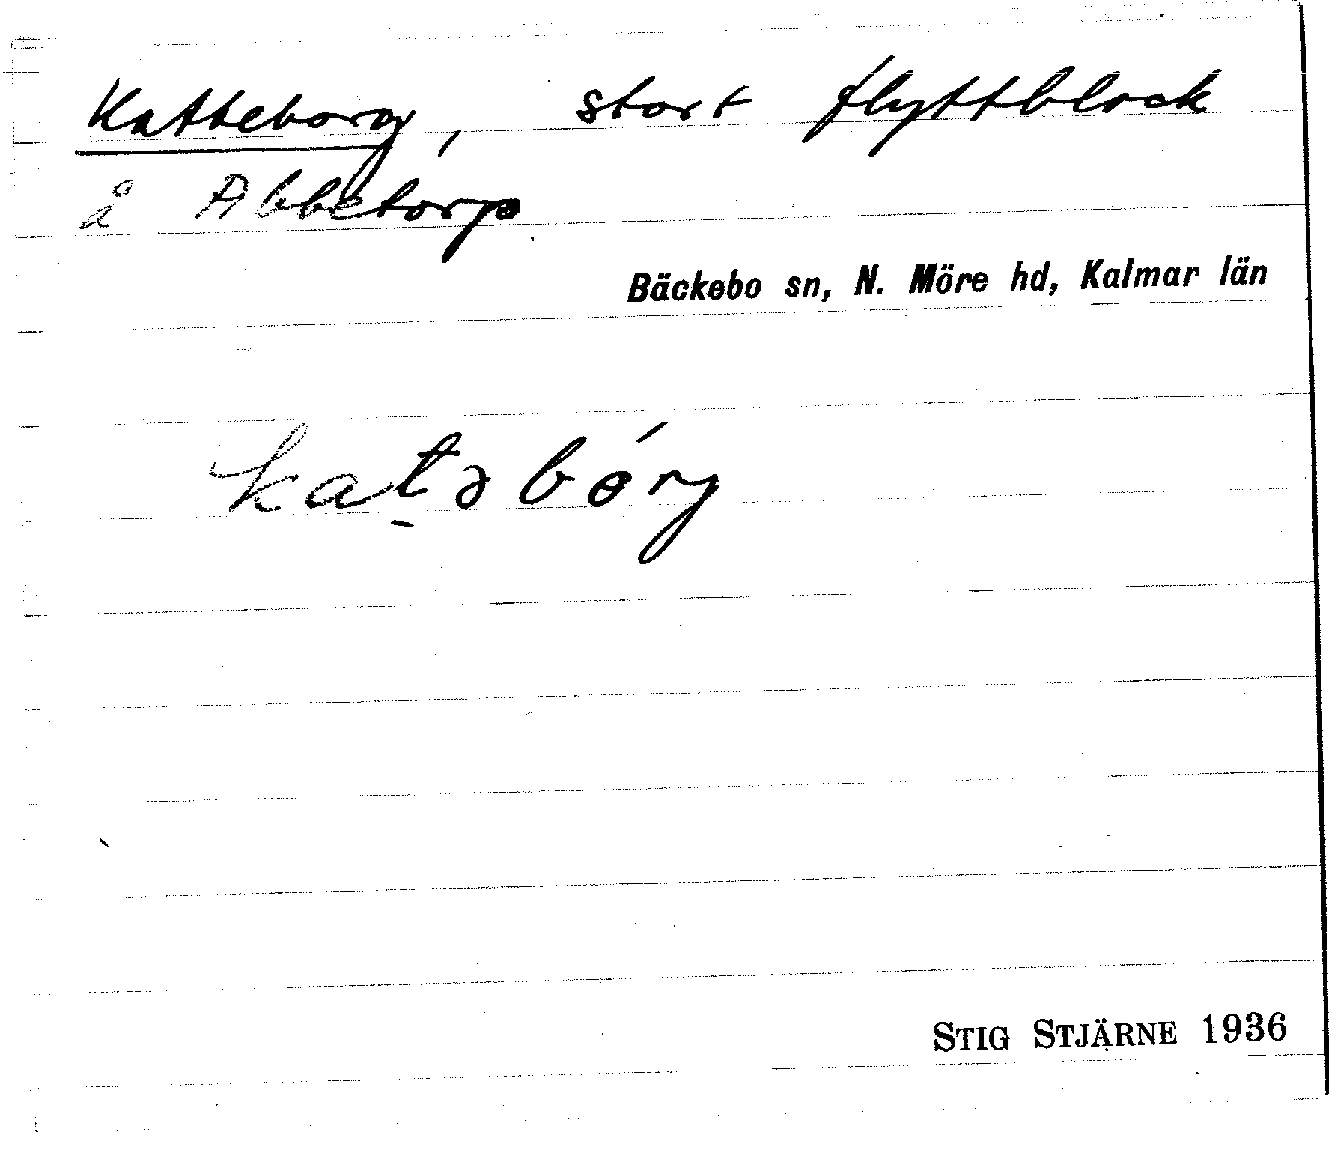 Katteborg, stort flyttblock
å Abbetorp
Bäckebo sn, N. Möre hd, Kalmar län
kat̠əbórg
STIG STJÄRNE 1936